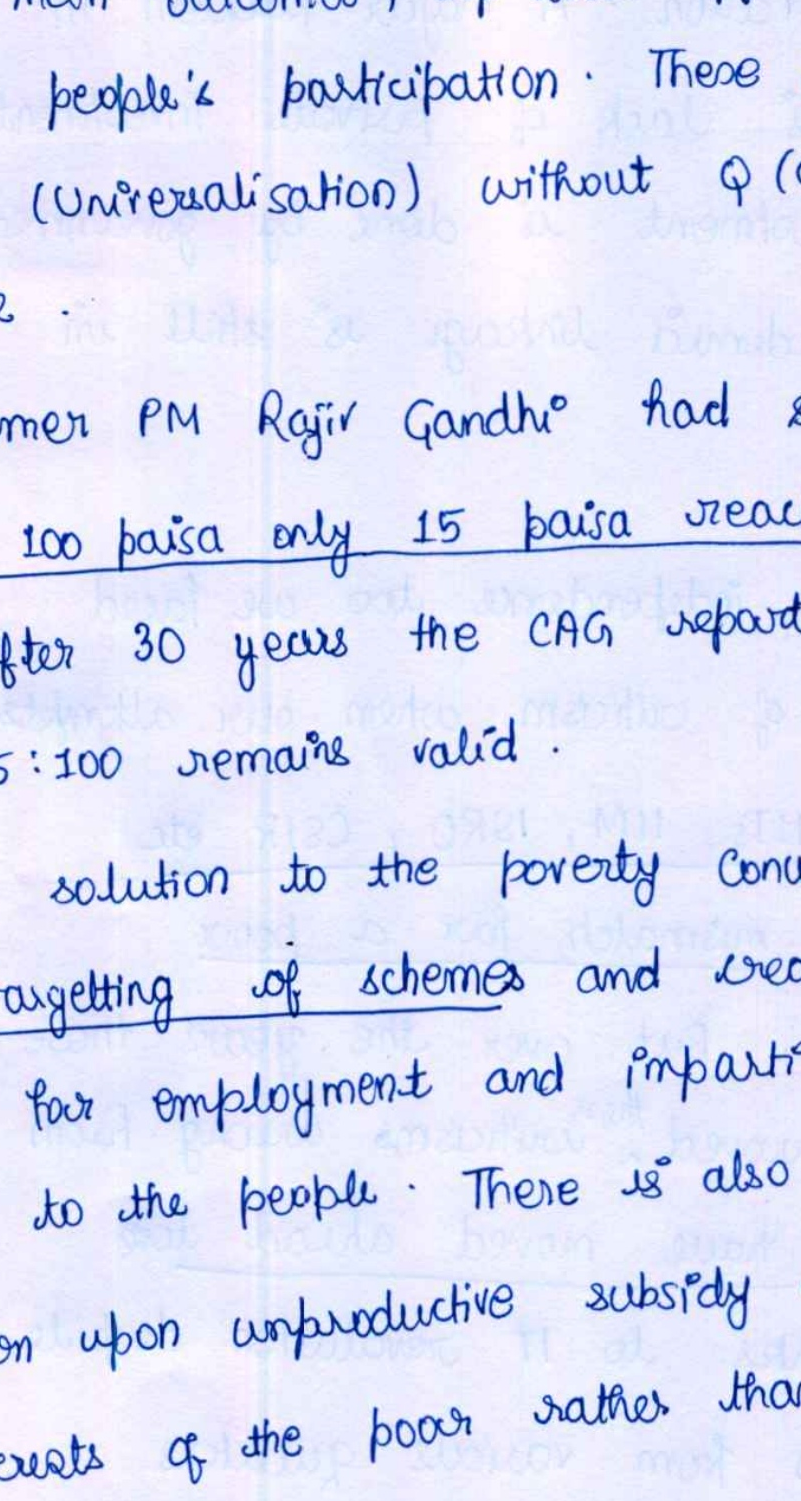 people's participation. These
(Universalisation) without Q (
mer PM Rajiv Gandhi had s
100 paisa only 15 paisa reac
fter 30 years the CAG report
5:100 remains valid.
solution to the poverty conu
argetting of schemes and crea
for employment and imparti
to the people. There is also
on upon unproductive subsidy
erests of the poor rather than